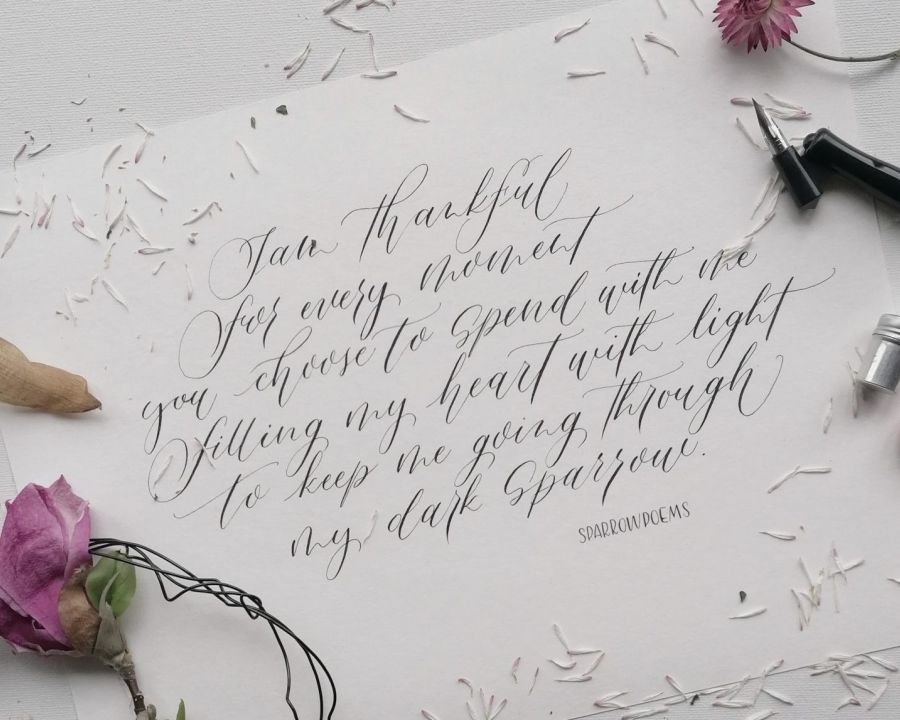 I am thankful
for every moment
you choose to spend with me
filling my heart with light
to keep me going through
my dark sparrow.
SPARROWPOEMS